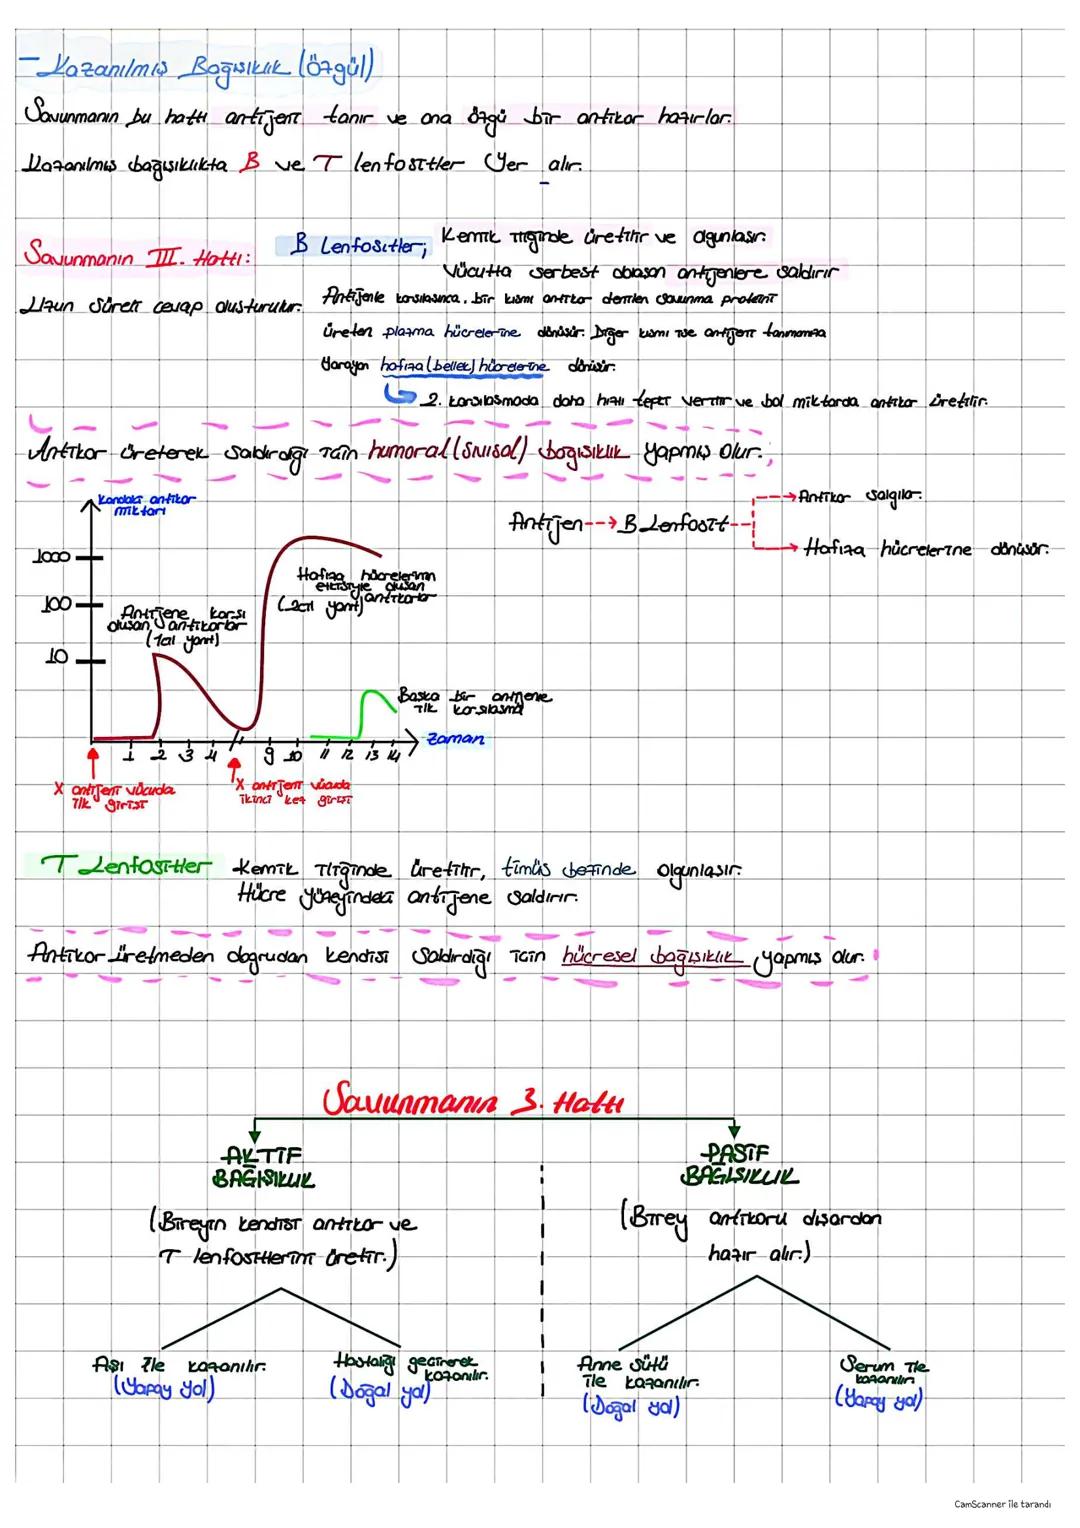 - Kazanılmış Bağışıklık (özgül)
Savunmanın bu hattı antijeni tanır ve ona özgü bir antikor hazırlar.
Kazanılmış bağışıklıkta B ve T lenfositler yer alır.
Savunmanın III. Hattı:
Uzun süreli cevap oluşturulur.
B Lenfositler;
Kemik iliğinde üretilir ve olgunlaşır.
Vücutta serbest dolaşan antijenlere saldırır
Antijenle karşılaşınca, bir kısmı antikor denilen savunma proteini
üreten plazma hücrelerine dönüşür. Diğer kısmı ise antijeni tanımamıza
yarayan hafıza (bellek) hücrelerine dönüşür.
2. karşılaşmada daha hızlı tepki verilir ve bol miktarda antikor üretilir.
Antikor üreterek saldırdığı için humoral (sıvısal) bağışıklık yapmış olur.
Kandaki antikor
miktarı
1000
100
10
Antijene karşı
oluşan antikorlar
(1cil yanıt)
Hafıza hücrelerinin
etkisiyle oluşan
antikorlar
(2cil yanıt)
Başka bir antijenle
ilk karşılaşma
1 2 3 4 9 10 11 12 13 14
zaman
X antijeni vücuda
ilk girişi
X antijeni vücuda
ikinci kez girişi
Antijen
B Lenfosit
Antikor salgılar.
Hafıza hücrelerine dönüşür.
T Lenfositler
Kemik iliğinde üretilir, timüs bezinde olgunlaşır.
Hücre yüzeyindeki antijene saldırır.
Antikor üretmeden doğrudan kendisi saldırdığı için hücresel bağışıklık yapmış olur.
Savunmanın 3. Hattı
AKTİF
BAĞIŞIKLIK
(Bireyin kendisi antikor ve
T lenfositlerini üretir.)
Aşı ile kazanılır.
(Yapay yol)
Hastalığı geçirerek
kazanılır.
(Doğal yol)
PASİF
BAĞIŞIKLIK
(Birey antikoru dışardan
hazır alır.)
Anne sütü
ile kazanılır.
(Doğal yol)
Serum ile
kazanılır.
(Yapay yol)
CamScanner ile tarandı